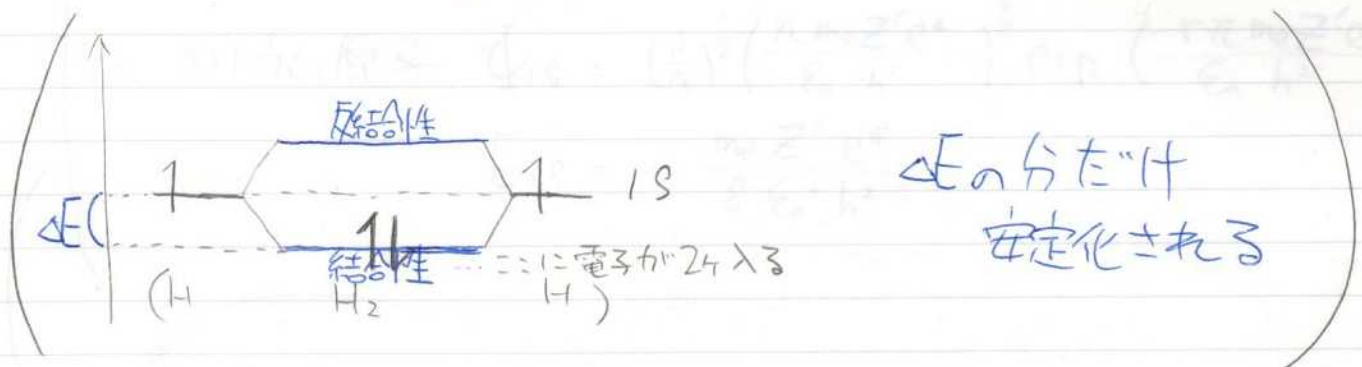 反結合性
1S
ΔE
結合性 … ここに電子が2ケ入る
(H H₂ H)
ΔEの分だけ
安定化される